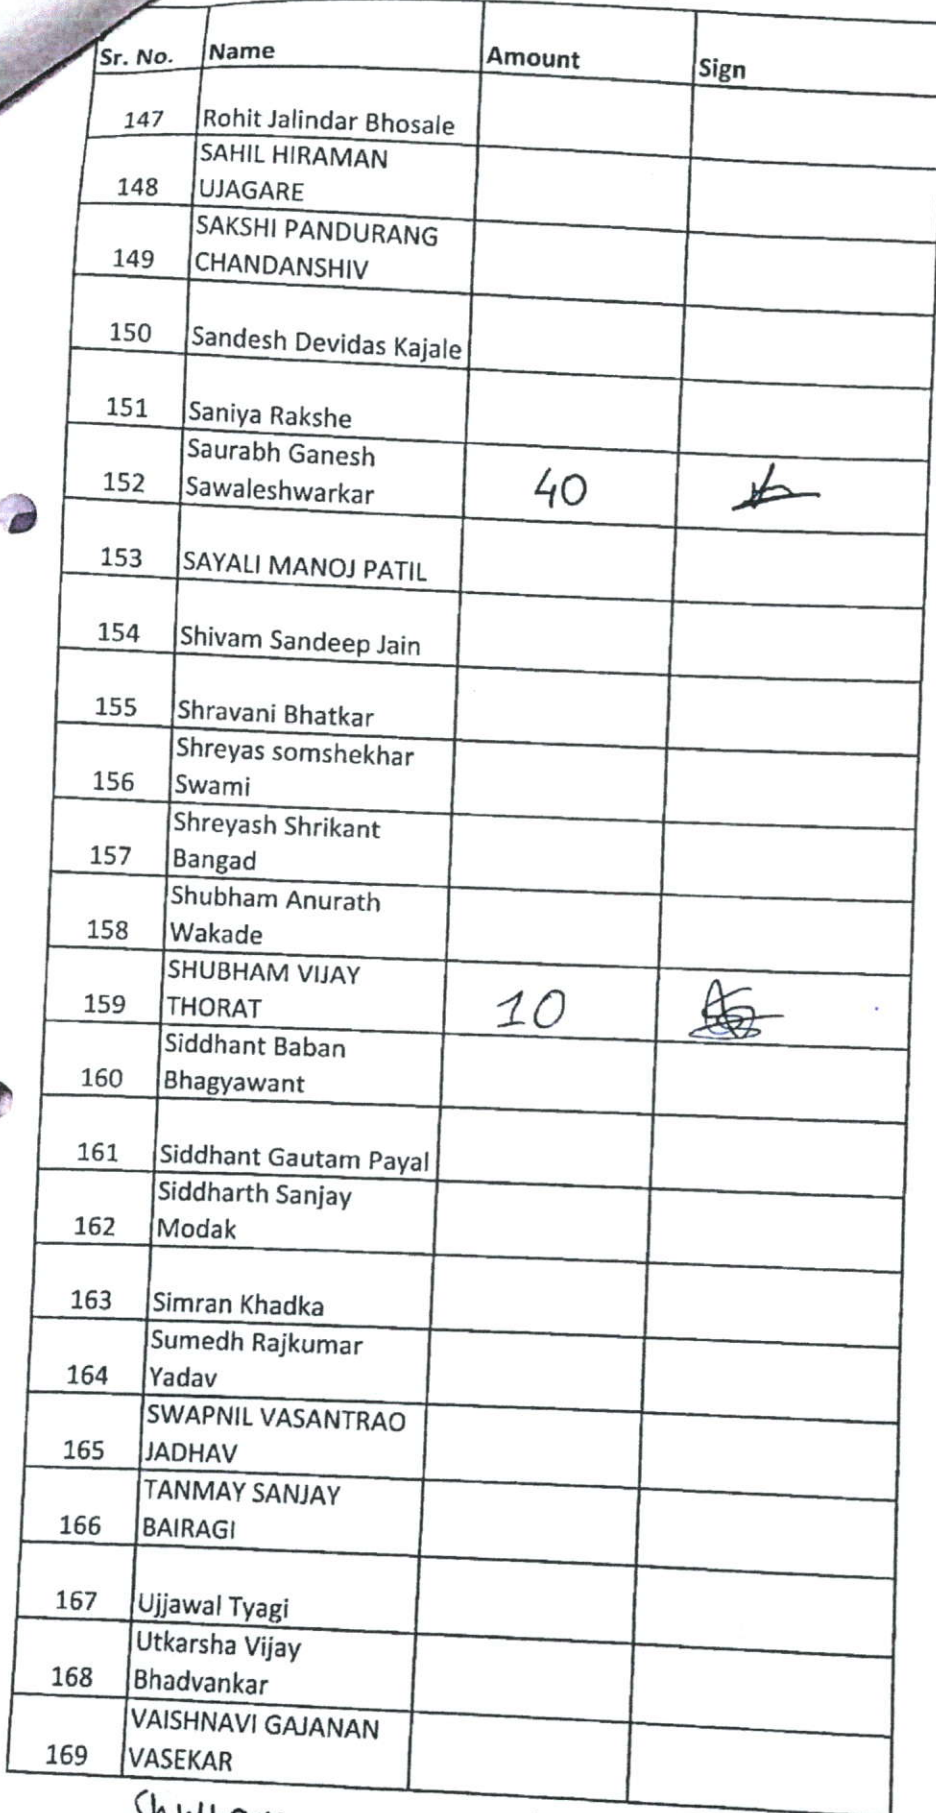 Sr. No. Name Amount Sign
147 Rohit Jalindar Bhosale
SAHIL HIRAMAN
148 UJAGARE
SAKSHI PANDURANG
149 CHANDANSHIV
150 Sandesh Devidas Kajale
151 Saniya Rakshe
Saurabh Ganesh
152 Sawaleshwarkar 40
153 SAYALI MANOJ PATIL
154 Shivam Sandeep Jain
155 Shravani Bhatkar
Shreyas somshekhar
156 Swami
Shreyash Shrikant
157 Bangad
Shubham Anurath
158 Wakade
SHUBHAM VIJAY
159 THORAT 10
Siddhant Baban
160 Bhagyawant
161 Siddhant Gautam Payal
Siddharth Sanjay
162 Modak
163 Simran Khadka
Sumedh Rajkumar
164 Yadav
SWAPNIL VASANTRAO
165 JADHAV
TANMAY SANJAY
166 BAIRAGI
167 Ujjawal Tyagi
Utkarsha Vijay
168 Bhadvankar
VAISHNAVI GAJANAN
169 VASEKAR